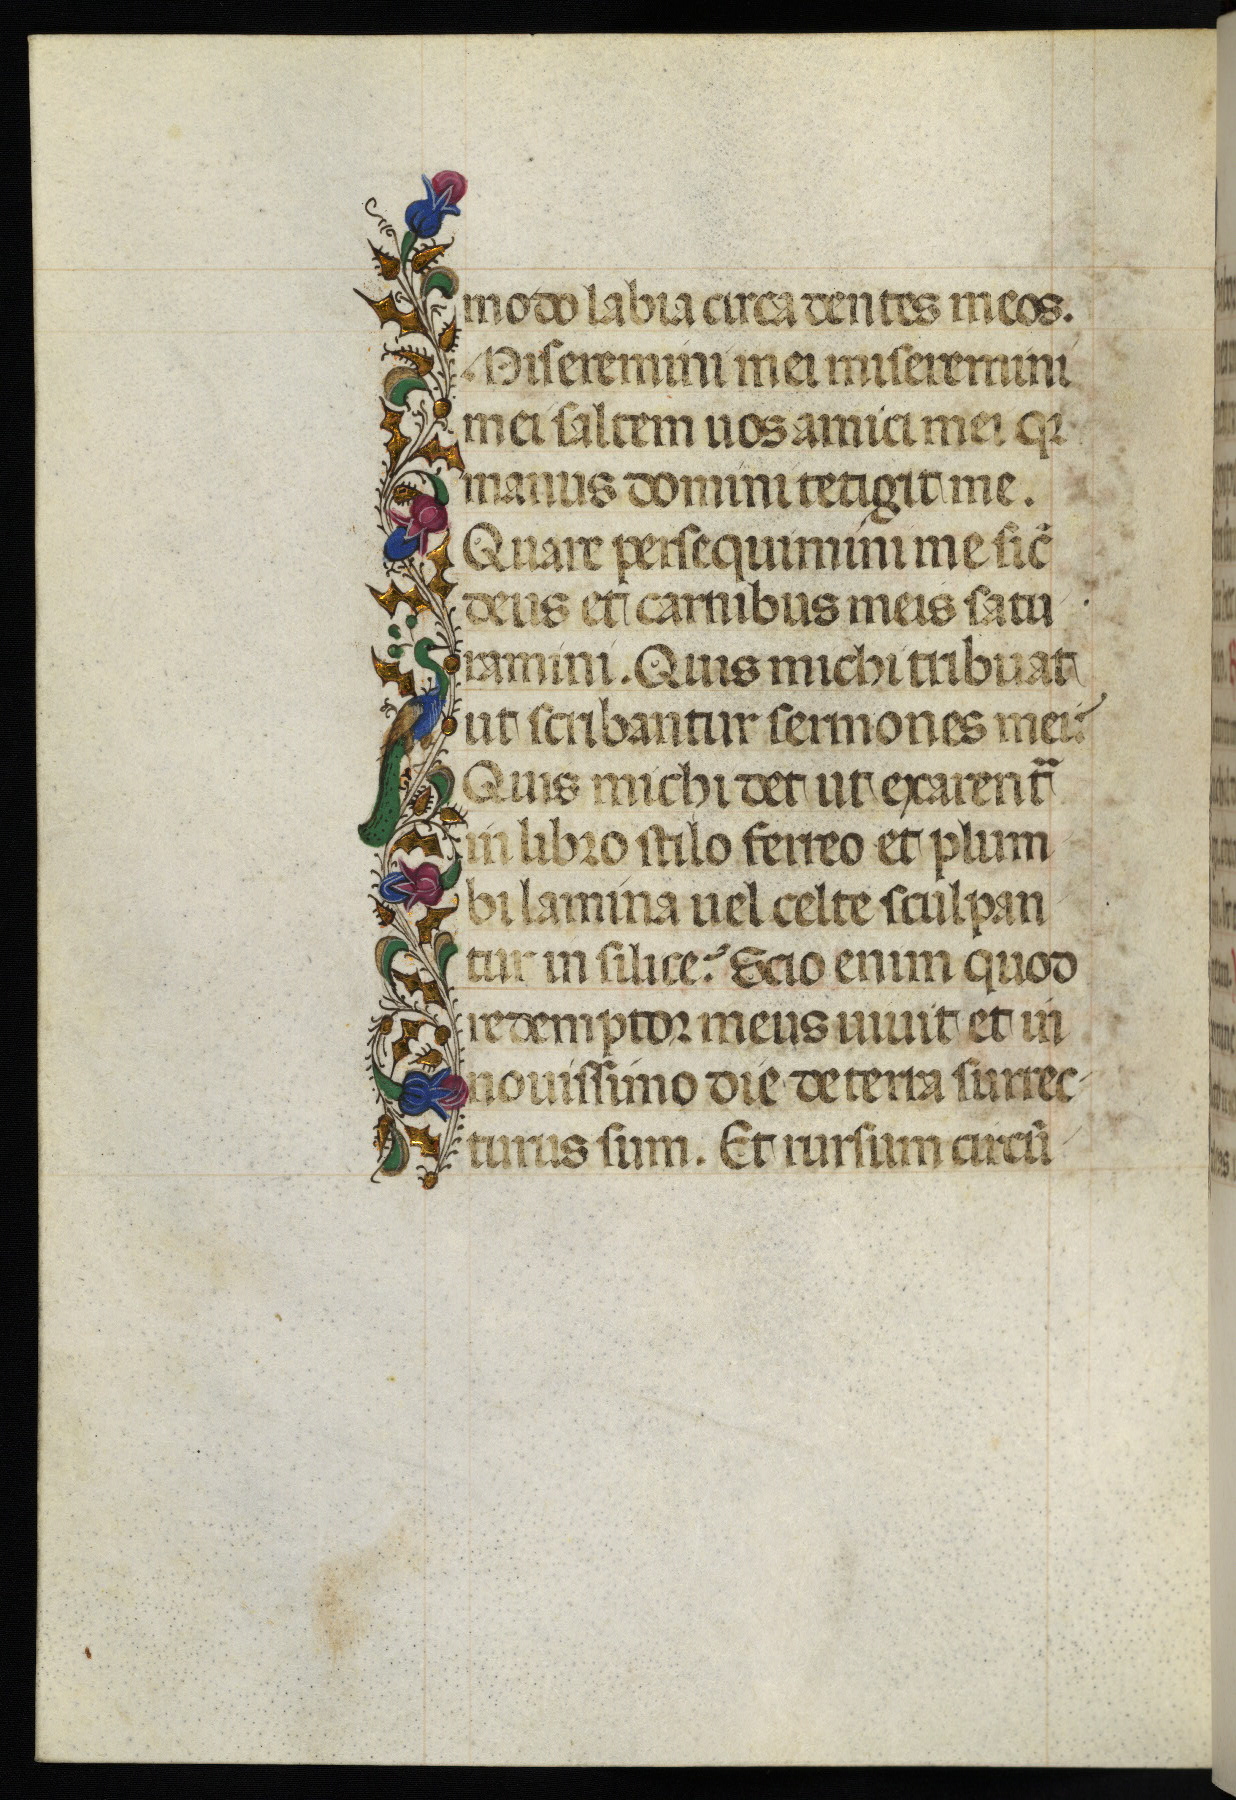 modo labia circa dentes meos.
Miseremini mei miseremini
mei saltem uos amici mei qr
manus domini tetigit me.
Quare persequimini me sic̄
deus et carnibus meis satu
ramini. Quis michi tribuat
ut scribantur sermones mei?
Quis michi det ut exarent̄
in libro stilo ferreo et plum
bi lamina uel celte sculpan
tur in silice? Scio enim quod
redemptor meus uiuit et in
nouissimo die de terra surrec
turus sum. Et rursum circū